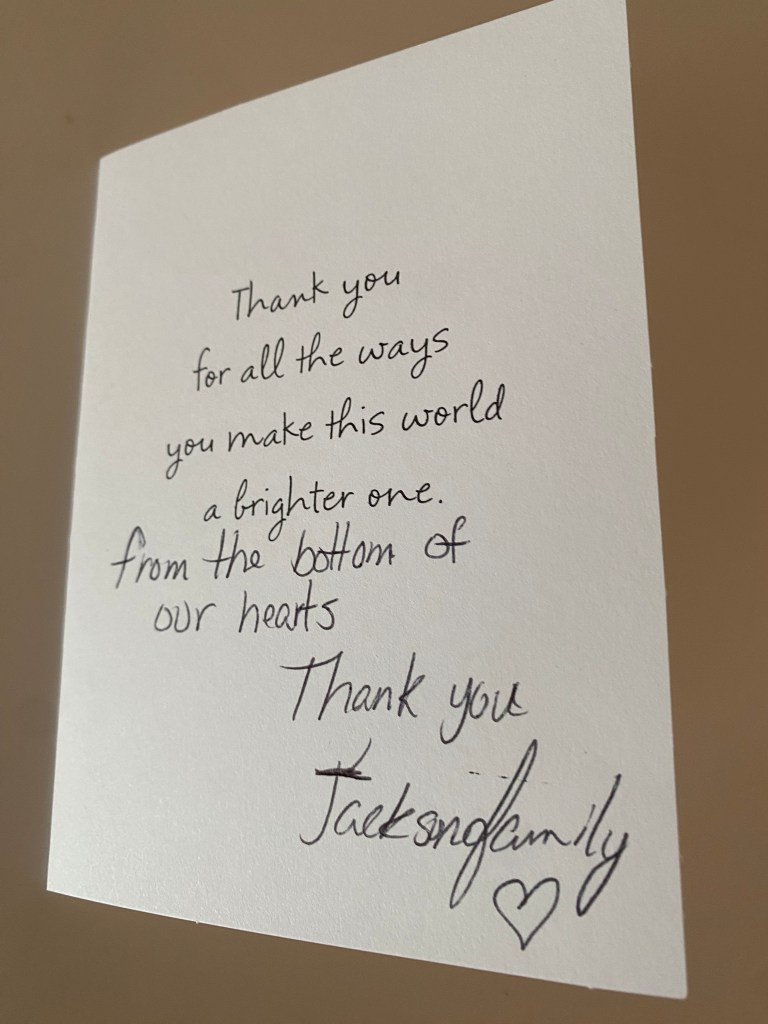 Thank you
for all the ways
you make this world
a brighter one.
from the bottom of
our hearts
Thank you
Jackson family